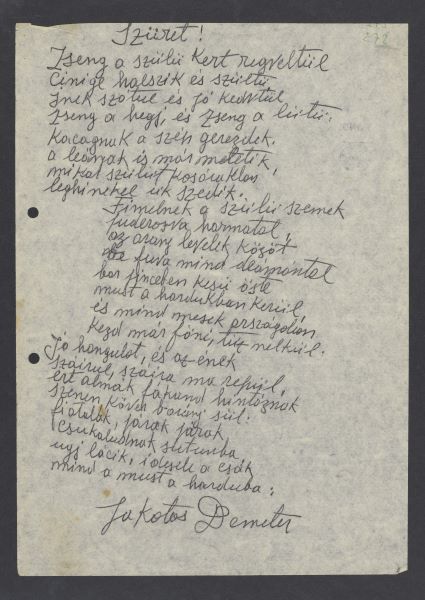 Szüret!
Zseng a szüllü kert regveltül
Cinige halszik és szültü
Inek szótul és jó kedvtül
Zseng a hegy, és zseng a liitü:
Kacagnak a szép gerezdek,
a leányak is már
mikat szüllüt kosárakban
leghinekel ük szedik.
Fimelnek a szüllü szemek
fuderosva harmatal,
az arany levelek között
fuva mind deámántal
bor pinceben kesü öste
must a hordukban kerül,
és mind mesek országában
kezd már főni, tüz nelkül.
Jó hangulat, és az ének
szájrul, szájra ma repül,
ért almák fákand hintóznak
szenen kövér báráni sül:
fiatalak, járak járak
Csukaludnak suttuba
ugi lácik, idesebe a csák
mind a must a harduba:
Jakotás Demeter